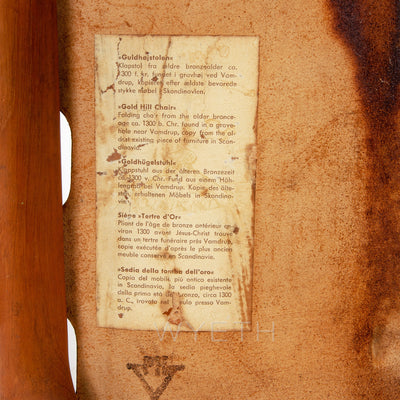 »Guldhøjstolen«
Klapstol fra ældre bronzealder ca.
1300 f. kr. fundet i gravhøj ved Vam-
drup, kopieret efter ældste bevarede
stykke møbel i Skandinavien.
»Gold Hill Chair«
Folding chair from the older bronce-
age ca. 1300 b. Chr. found in a grave-
hole near Vamdrup, copy from the al-
drest existing piece of furniture in Scan-
dinavia.
»Goldhügelstuhl«
Klappstuhl aus der älteren Bronzezeit
ca. 1300 v. Chr. Fund aus einem Hüh-
Vamdrup. Kopie des älte-
sten, erhaltenen Möbels in Skandina-
vien.
Siège »Tertre d'Or«
Pliant de l'âge de bronze antérieur en-
viron 1300 avant Jésus-Christ trouvé
dans un tertre funéraire près Vamdrup,
copie exécutée d'après le plus ancien
meuble conservé en Scandinavie.
»Sedia della tomba dell'oro«
Copia del mobile più antico esistente
in Scandinavia, la sedia pieghevole
della prima età del bronzo, circa 1300
a. C., trovato nel tumulo presso Vam-
drup.
WYETH